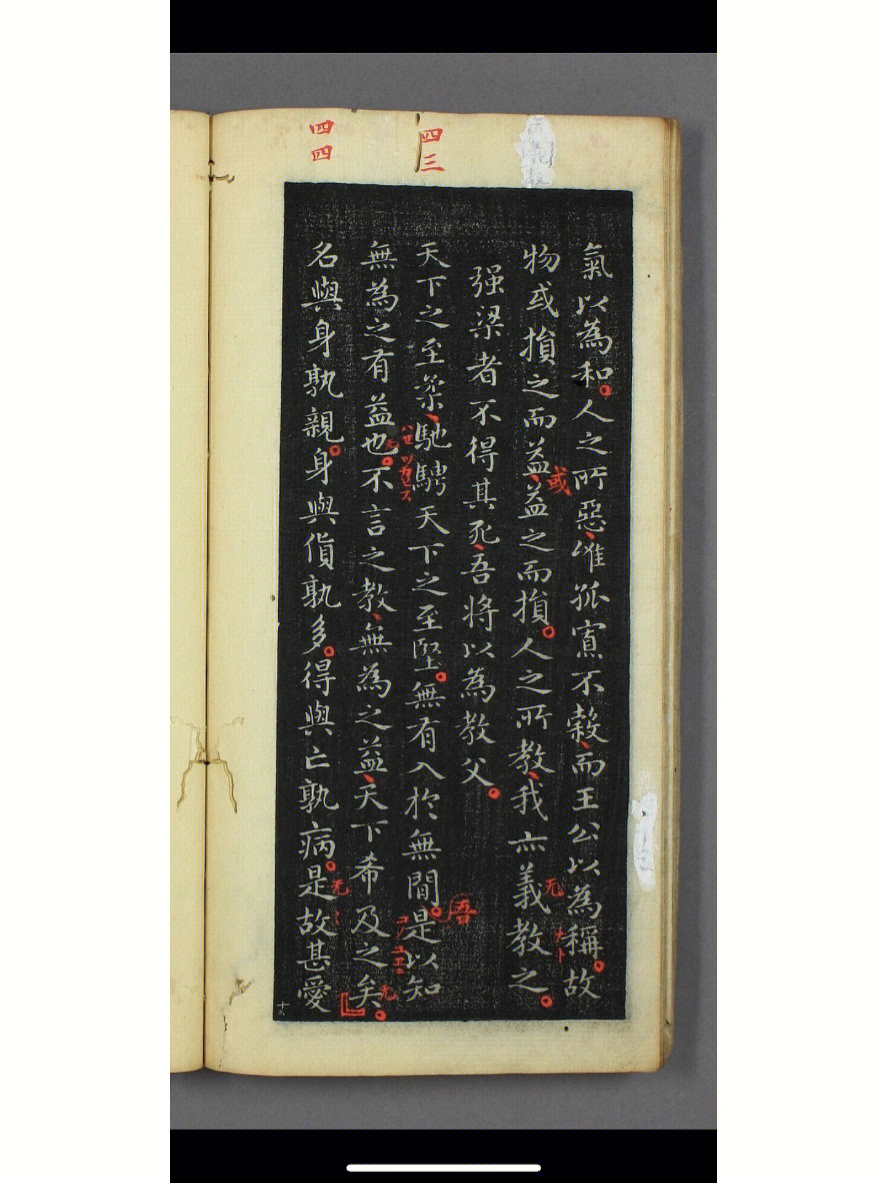 氣以為和人之所惡惟孤寡不穀而王公以為稱故
物或損之而益益之而損人之所教我亦義教之
强梁者不得其死吾將以為教父
天下之至柔馳騁天下之至堅無有入於無間是以知
無為之有益也不言之教無為之益天下希及之矣
名與身孰親身與貨孰多得與亡孰病是故甚愛
四三
四四
或
无
吾
无
无